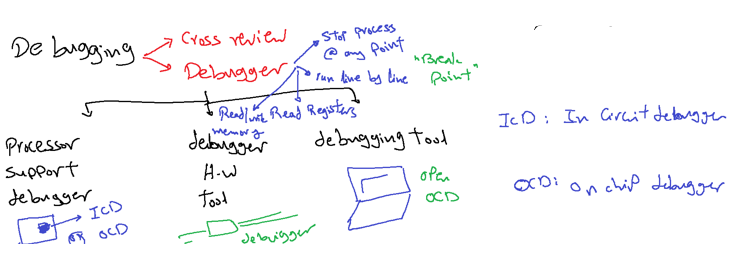 Debugging
Cross review
Debugger
Stop process
@ any point
run line by line
"Break
Point"
Read/write
memory
Read Registers
Processor
support
debugger
ICD
or OCD
debugger
H-W
tool
debugger
debugging tool
open
OCD
ICD: In Circuit debugger
OCD: on chip debugger